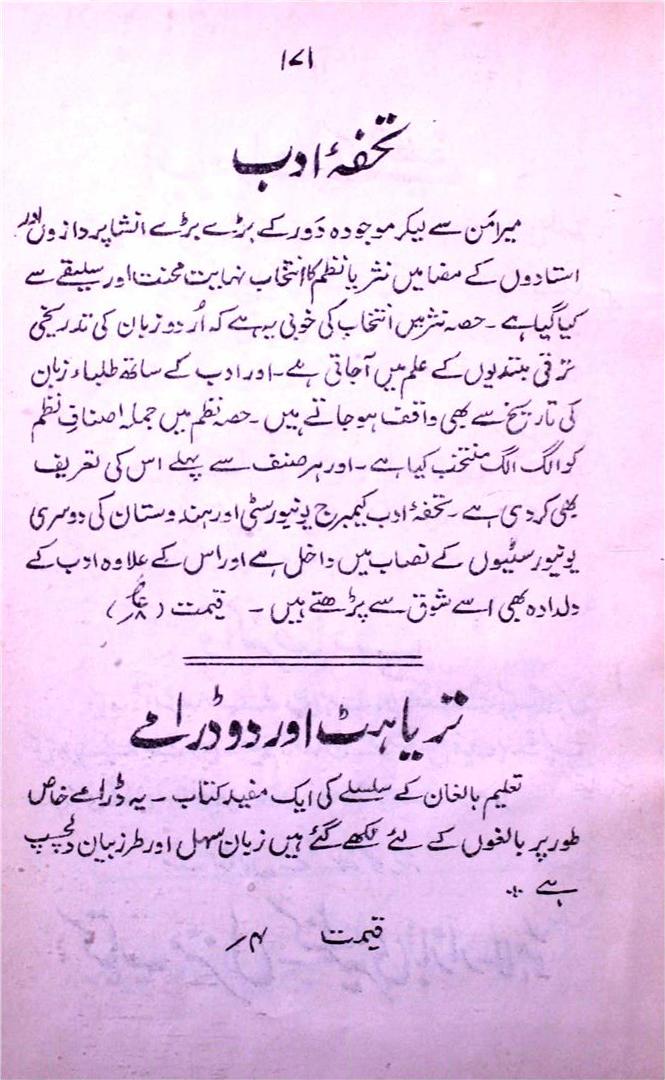 ۱۷۱
تحفۂ ادب
میرامَن سے لیکر موجودہ دَور کے بڑے بڑے انشا پردازوں اور
استادوں کے مضامین نثر یا نظم کا انتخاب نہایت محنت اور سلیقے سے
کیا گیا ہے ۔ حصہ نثر میں انتخاب کی خوبی یہ ہے کہ اُردو زبان کی تدریجی
ترقی مبتدیوں کے علم میں آجاتی ہے ۔ اور ادب کے ساتھ طلباء زبان
کی تاریخ سے بھی واقف ہو جاتے ہیں ۔ حصہ نظم میں جملہ اصنافِ نظم
کو الگ الگ منتخب کیا ہے ۔ اور ہر صنف سے پہلے اس کی تعریف
بھی کر دی ہے ۔ تحفۂ ادب کیمبرج یونیورسٹی اور ہندوستان کی دوسری
یونیورسٹیوں کے نصاب میں داخل ہے اور اس کے علاوہ ادب کے
دلدادہ بھی اسے شوق سے پڑھتے ہیں ۔ قیمت
تریا ہٹ اور دو ڈرامے
تعلیم بالغان کے سلسلے کی ایک مفید کتاب ۔ یہ ڈرامے خاص
طور پر بالغوں کے لئے لکھے گئے ہیں زبان سہل اور طرز بیان دلچسپ
ہے ٭
قیمت ۴؍